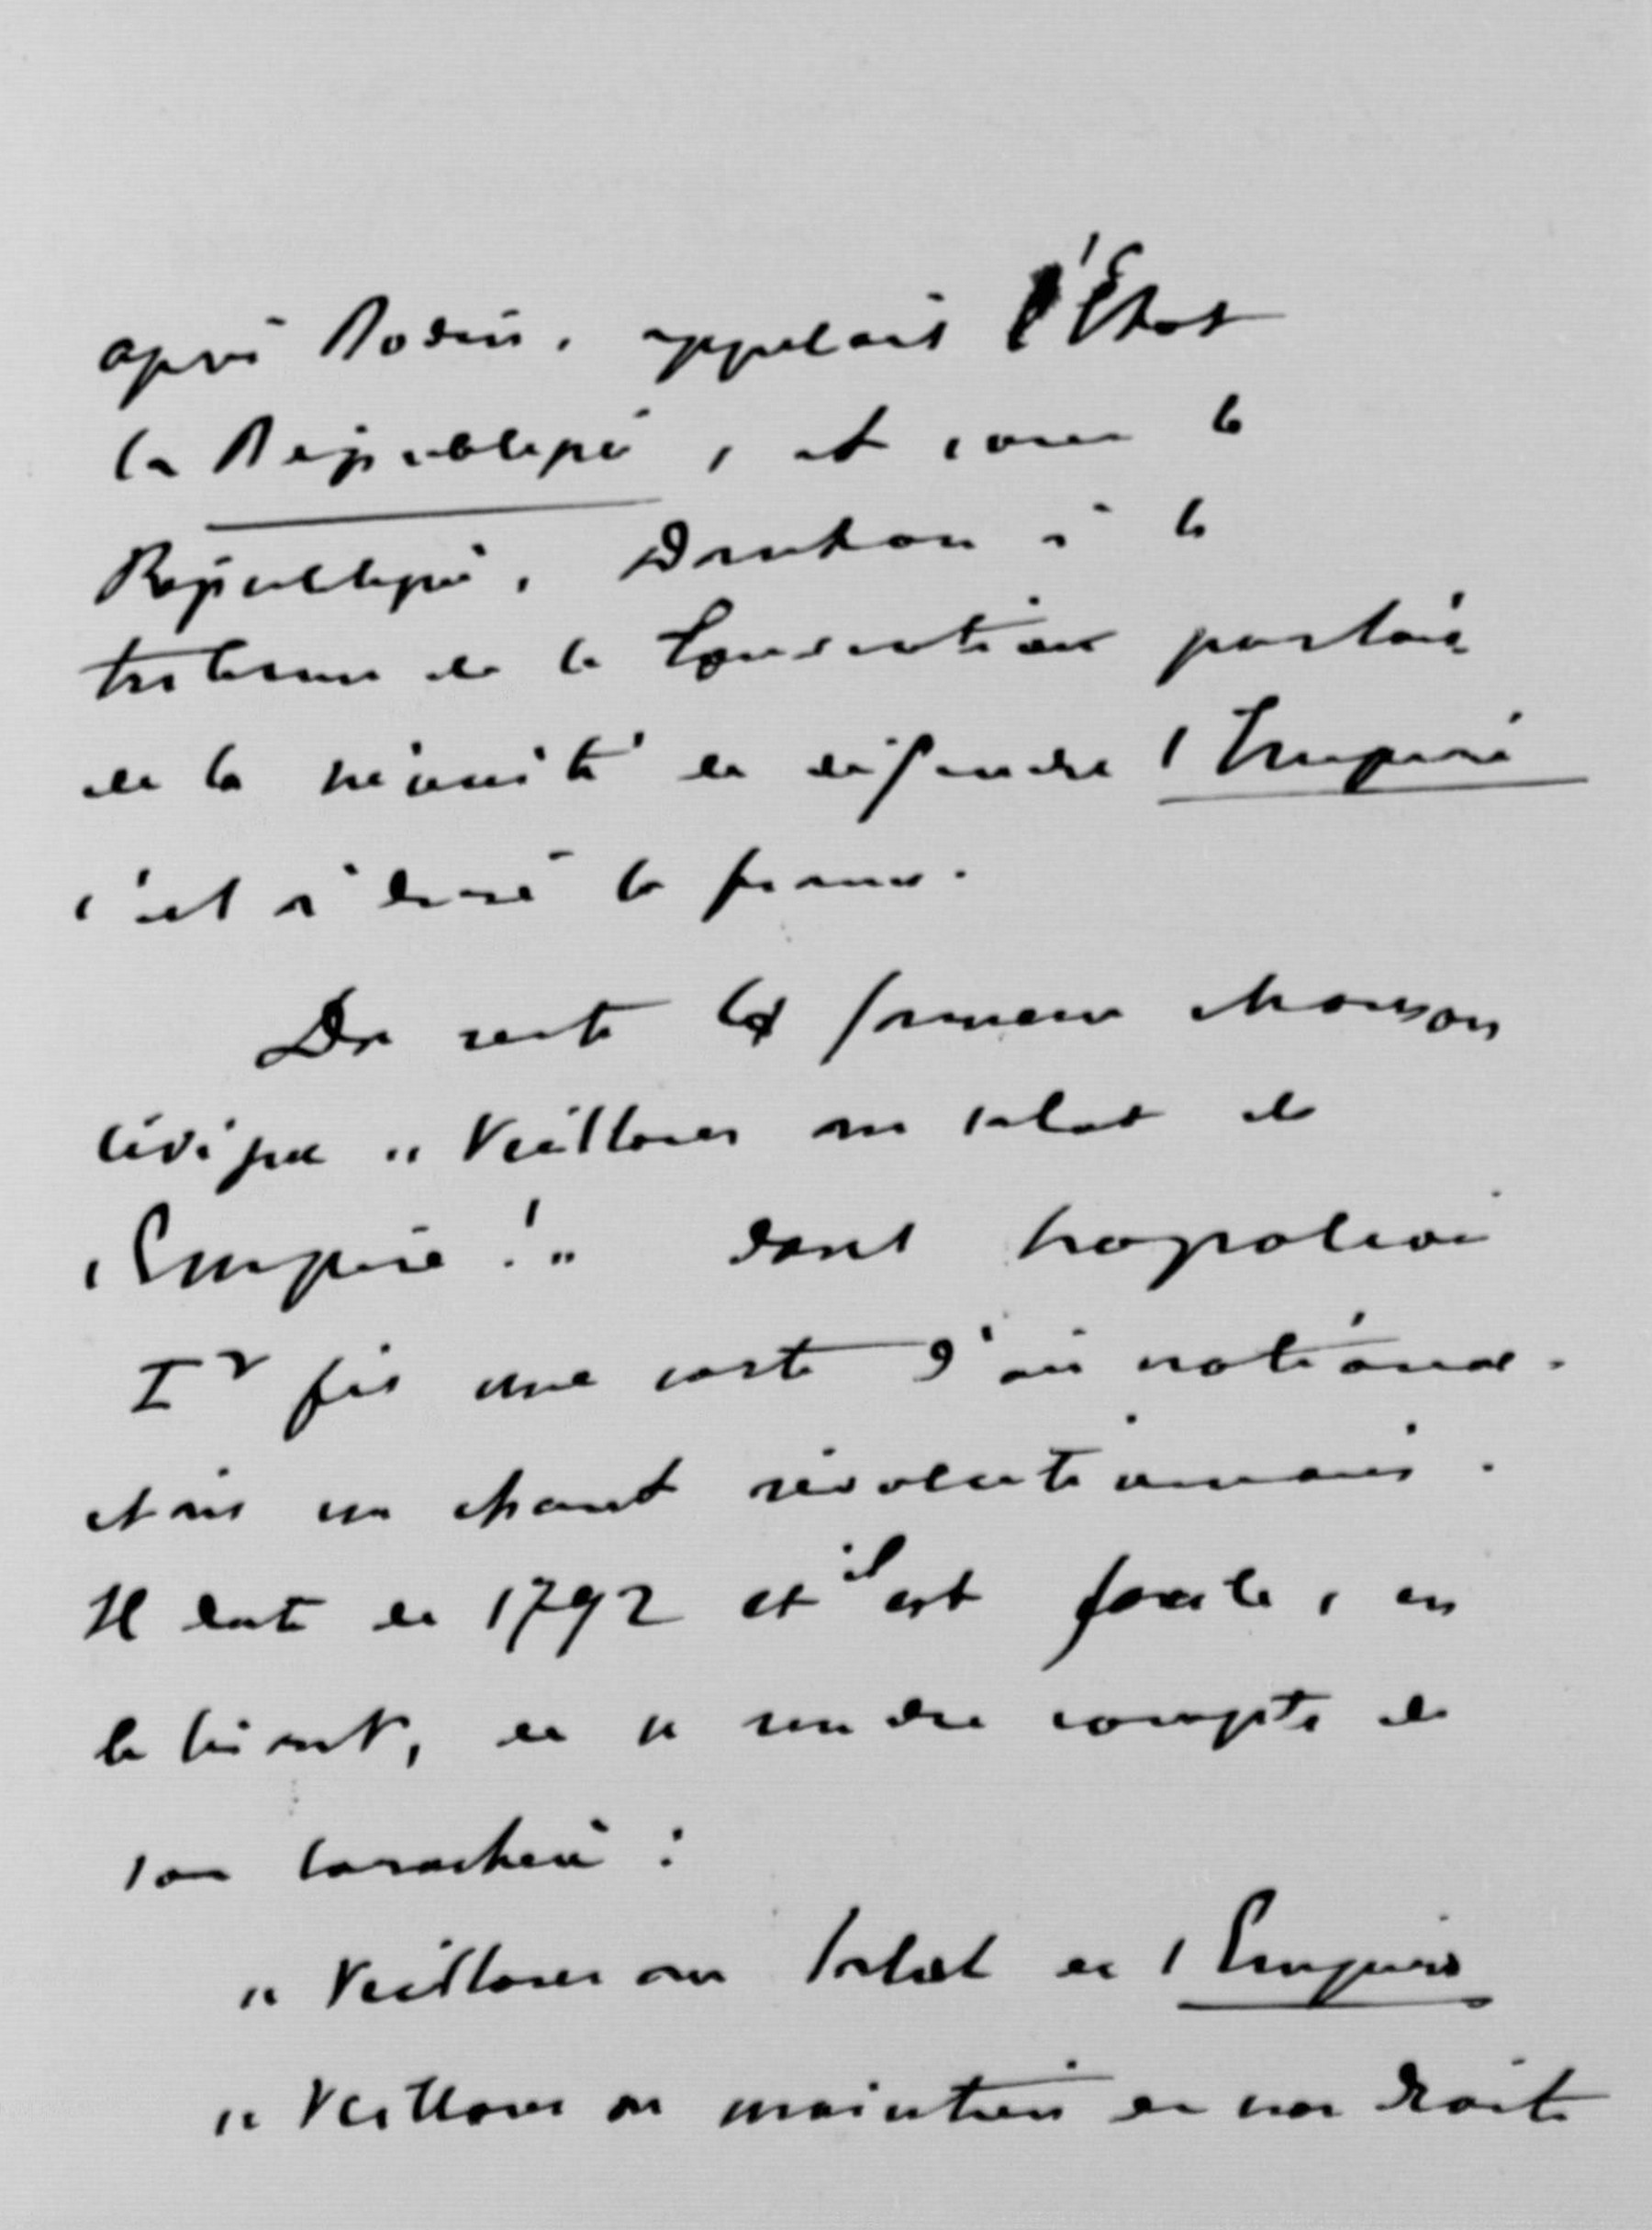 après Bodin, appelait l'État
la République, et sous la
République, Danton à la
tribune de la Convention parlait
de la nécessité de défendre l'Empire
c'est à dire la france.
Du reste la fameuse chanson
civique "Veillons au salut de
l'Empire!" dont Napoléon
Ier fit une sorte d'air national.
etait un chant révolutionnaire.
Il date de 1792 et il est facile, en
le lisant, de se rendre compte de
son caractère :
"Veillons au Salut de l'Empire
"Veillons au maintien de nos droits